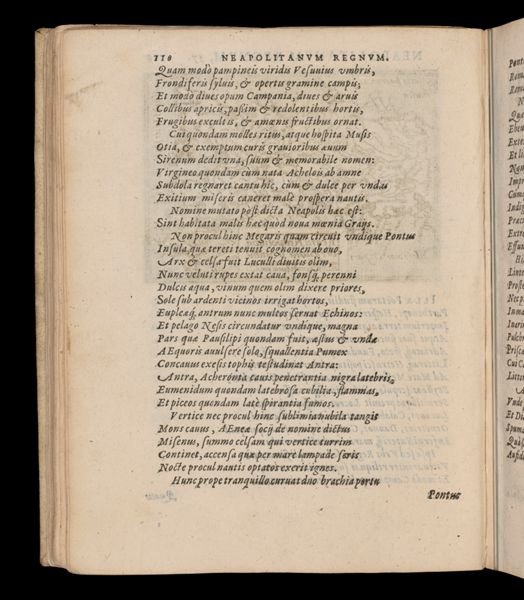 110 NEAPOLITANVM REGNVM.
Quam modò pampineis viridis Vesuuius vmbris,
Frondiferis syluis, & opertis gramine campis;
Et modò diues opum Campania, diues & aruis
Collibus apricis, paßim & redolentibus hortis,
Frugibus excultis, & amœnis fructibus ornat.
Cui quondam molles ritus, atque hospita Musis
Otia, & exemptum curis grauioribus æuum
Sirenum dedit vna, suum & memorabile nomen:
Virgineo quondam cùm nata Achelois ab amne
Subdola regnaret cantu hic, cùm & dulce per vndas
Exitium miseris caneret malè prospera nautis.
Nomine mutato pòst dicta Neapolis hæc est:
Sint habitata malis hæc quod noua mœnia Graijs.
Non procul hinc Megaris quam circuit vndique Pontus
Insula, quæ tereti tenuit cognomen ab ouo,
Arx & celsa fuit Luculli diuitis olim,
Nunc veluti rupes extat caua, fonsq́; perenni
Dulcis aqua, vinum quem olim dixere priores,
Sole sub ardenti vicinos irrigat hortos,
Eupleaq́; antrum nunc multos seruat Echinos:
Et pelago Nesis circundatur vndique, magna
Pars quæ Pausilipi quondam fuit, æstus & vndæ
AEquoris auulsere solo, squallentia Pumex
Concauus exesis tophis testudinat Antra:
Antra, Acheronta cauis penetrantia nigra latebris,
Eumenidum quondam latebrosa cubilia, flammas,
Et piceos quondam latè spirantia fumos.
Vertice nec procul hinc sublimia nubila tangit
Mons cauus, AEneæ socij de nomine dictus
Misenus, summo celsam qui vertice turrim
Continet, accensa quæ per mare lampade seris
Nocte procul nautis optatos exerit ignes.
Hunc prope tranquillo curuat duo brachia portu
Pontus